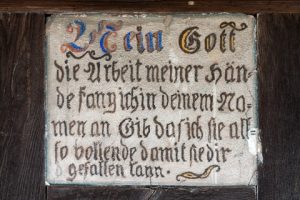 Mein Gott
die Arbeit meiner Hän-
de fang ich in deinem Na-
men an Gib das ich sie all-
so vollende damit sie dir
gefallen kann.